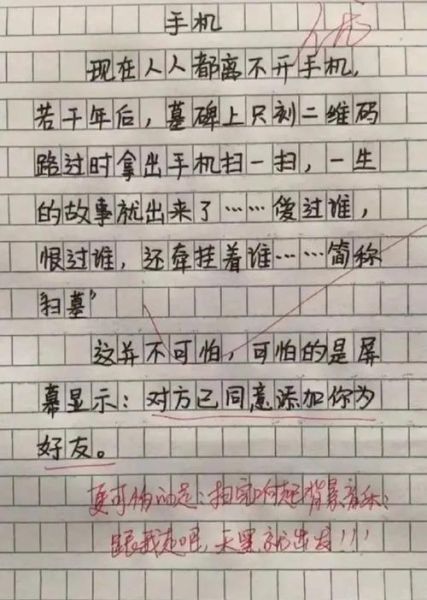 手机
现在人人都离不开手机,
若干年后，墓碑上只刻二维码
路过时拿出手机扫一扫，一生
的故事就出来了……爱过谁，
恨过谁，还牵挂着谁……简称
"扫墓"
这并不可怕，可怕的是屏
幕显示：对方已同意添加你为
好友。
更可怕的是：扫完响起背景音乐：
跟我走吧，天黑就出发!!!